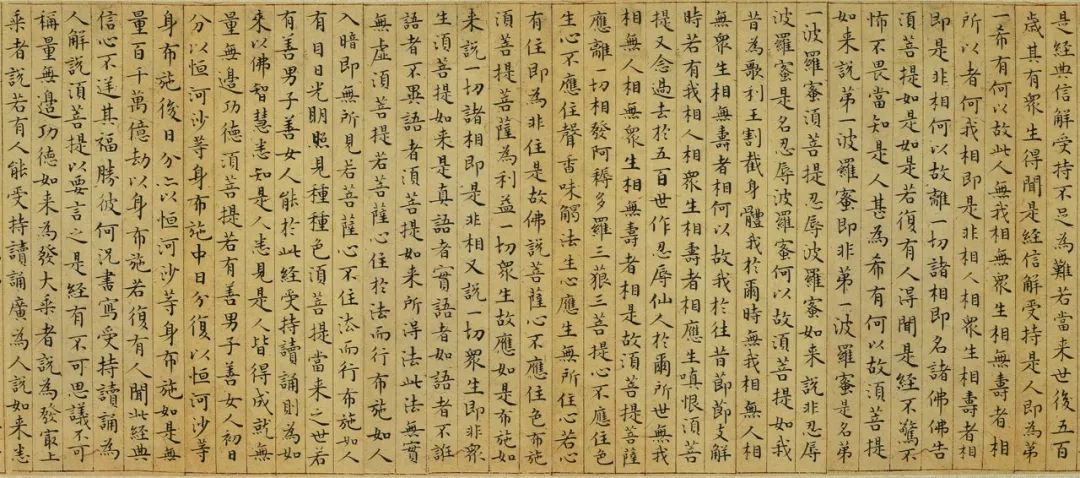 是經典信解受持不足為難若當来世後五百
歲其有衆生得聞是經信解受持是人即為弟
一希有何以故此人無我相無衆生相無壽者相
所以者何我相即是非相人相衆生相壽者相
即是非相何以故離一切諸相即名諸佛告
須菩提如是如是若復有人得聞是經不驚不
怖不畏當知是人甚為希有何以故須菩提
如来說弟一波羅蜜即非弟一波羅蜜是名弟
一波羅蜜須菩提忍辱波羅蜜如来說非忍辱
波羅蜜是名忍辱波羅蜜何以故須菩提如我
昔為歌利王割截身體我於爾時無我相無人相
無衆生相無壽者相何以故我於往昔節節支解
時若有我相人相衆生相壽者相應生嗔恨須菩
提又念過去於五百世作忍辱仙人於爾所世無我
相無人相無衆生相無壽者相是故須菩提菩薩
應離一切相發阿耨多羅三藐三菩提心不應住色
生心不應住聲香味觸法生心應生無所住心若心
有住即為非住是故佛說菩薩心不應住色布施
須菩提菩薩為利益一切衆生故應如是布施如
来說一切諸相即是非相又說一切衆生即非衆
生須菩提如来是真語者實語者如語者不誑
語者不異語者須菩提如来所得法此法無實
無虛須菩提若菩薩心住於法而行布施如人
入暗即無所見若菩薩心不住法而行布施如人
有目日光明照見種種色須菩提當来之世若
有善男子善女人能於此經受持讀誦則為如
来以佛智慧悉知是人悉見是人皆得成就無
量無邊功德須菩提若有善男子善女人初日
分以恒河沙等身布施中日分復以恒河沙等
身布施後日分亦以恒河沙等身布施如是無
量百千萬億劫以身布施若復有人聞此經典
信心不逆其福勝彼何況書寫受持讀誦為
人解說須菩提以要言之是經有不可思議不可
稱量無邊功德如来為發大乘者說為發最上
乘者說若有人能受持讀誦廣為人說如来悉